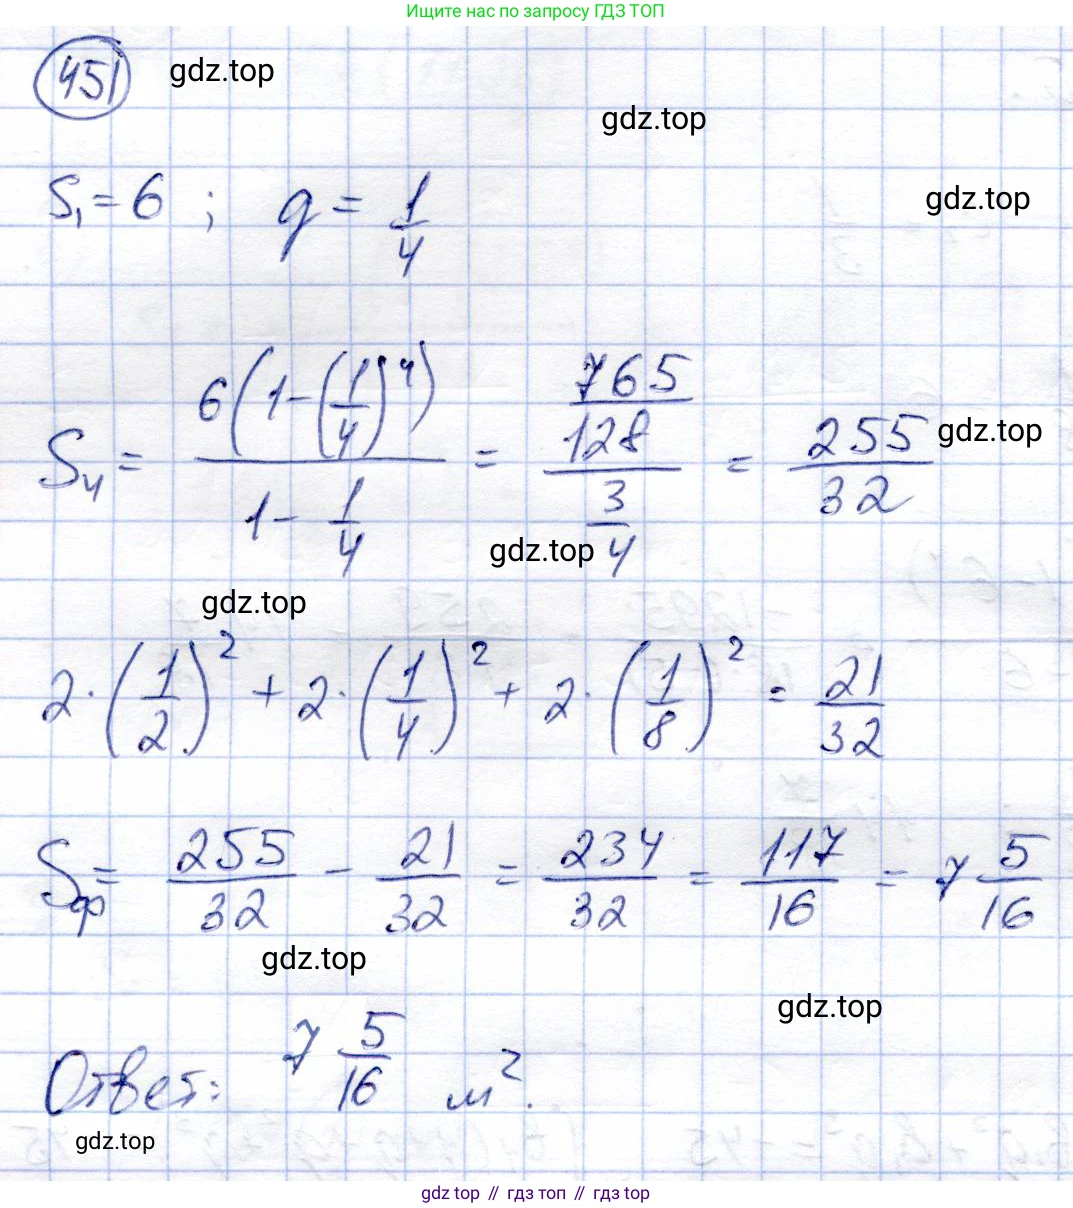 Ищите нас по запросу ГДЗ ТОП
451 gdz.top
gdz.top
S₁ = 6 ; q = 1/4 gdz.top
S₄ = 6(1-(1/4)⁴)/(1 - 1/4) = (765/128)/(3/4) = 255/32 gdz.top
gdz.top
gdz.top
2·(1/2)² + 2·(1/4)² + 2·(1/8)² = 21/32
Sф = 255/32 - 21/32 = 234/32 = 117/16 = 7 5/16
gdz.top
gdz.top
Ответ: 7 5/16 м².
gdz.top
gdz top // гдз топ // gdz top